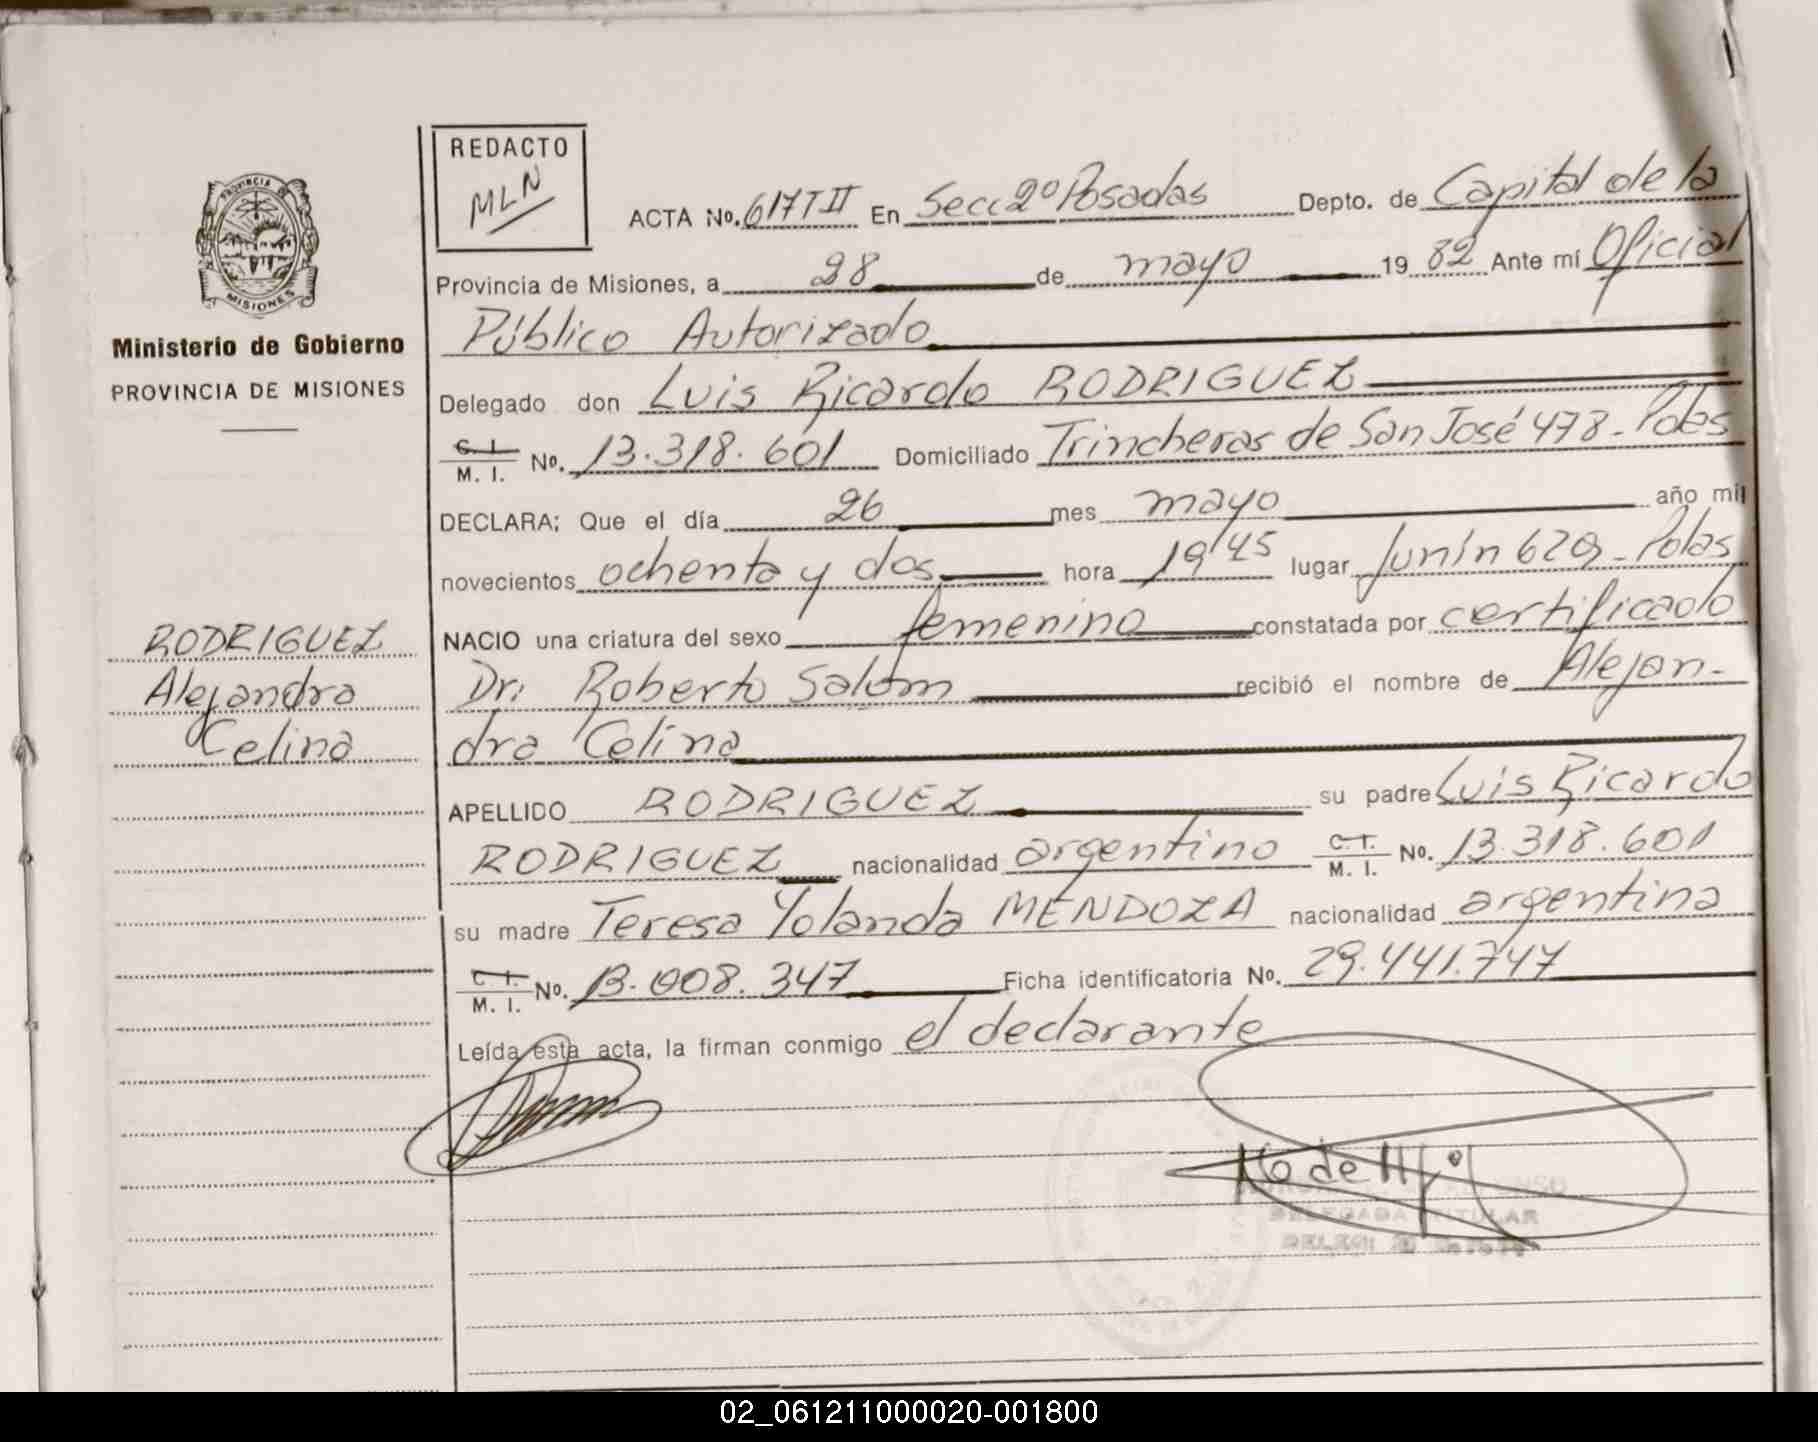 REDACTO
MLN
PROVINCIA DE
MISIONES
Ministerio de Gobierno
PROVINCIA DE MISIONES
ACTA No. 617 T II En Secc 2º Posadas Depto. de Capital de la
Provincia de Misiones, a 28 de mayo 1982 Ante mí Oficial
Público Autorizado
Delegado don Luis Ricardo RODRIGUEZ
C. I.
M. I. No. 13.318.601 Domiciliado Trincheras de San José 478 - Pdas
DECLARA; Que el día 26 mes mayo año mil
novecientos ochenta y dos hora 19'45 lugar Junín 629 - Pdas
NACIO una criatura del sexo femenino constatada por certificado
Dr. Roberto Salom recibió el nombre de Alejan-
dra Celina
APELLIDO RODRIGUEZ su padre Luis Ricardo
RODRIGUEZ nacionalidad argentino C. I. M. I. No. 13.318.601
su madre Teresa Yolanda MENDOZA nacionalidad argentina
C. I.
M. I. No. 13.008.347 Ficha identificatoria No. 29.441.747
Leída esta acta, la firman conmigo el declarante
RODRIGUEZ
Alejandra
Celina
DELEGADA TITULAR
02_061211000020-001800